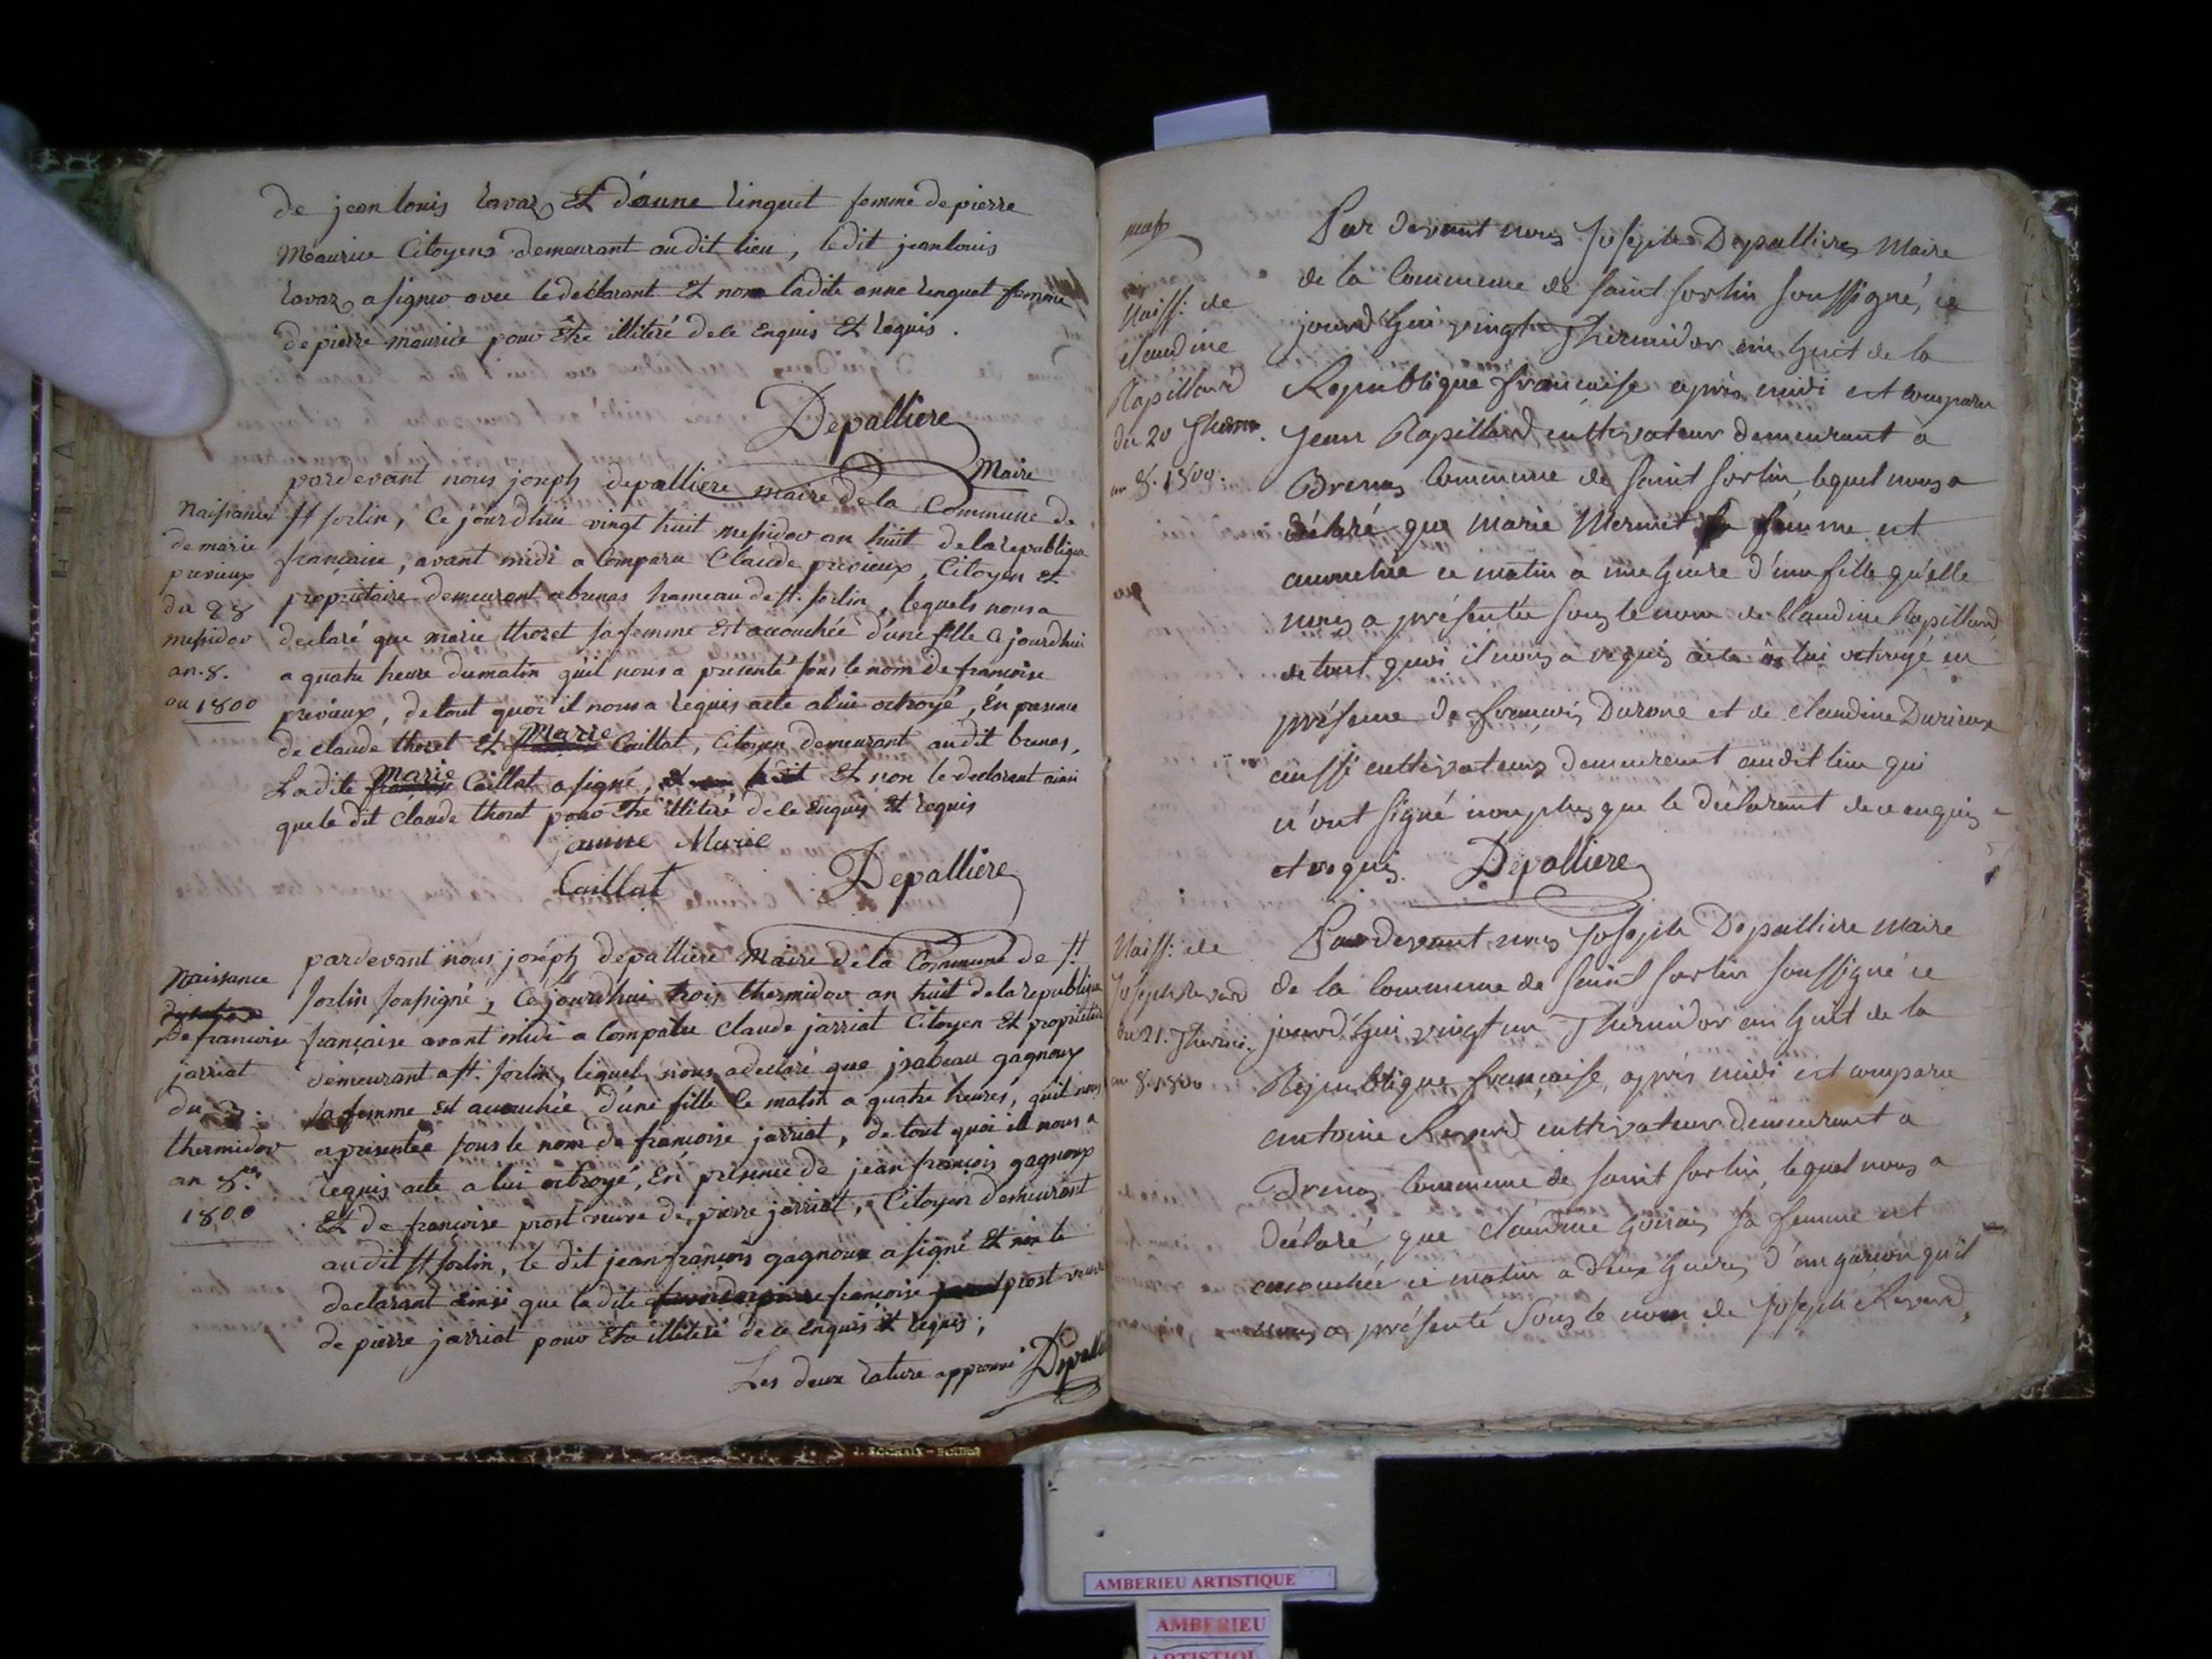 de jean louis ravaz Et d'anne linguet femme de pierre
Maurice Citoyens demeurant audit lieu, ledit jean louis
ravaz a signer avec le déclarant Et non ladite anne linguet femme
de pierre maurice pour être illiteré de ce Enquis Et requis.
Depalliere
Maire
Naissance
de marie
previeux
du 28
messidor
an.8.
ou 1800
pardevant nous joseph depalliere maire de la Commune de
st sorlin, Ce jourdhui vingt huit messidor an huit de la republique
française, avant midi a Comparu Claude previeux, Citoyen Et
propriétaire demeurant a brenas hameau de st. sorlin, lequels nous a
declaré que marie thozet sa femme Est acouchée d'une fille Ce jourdhui
a quatre heure du matin qu'il nous a presenté sous le nom de francoise
previeux, de tout quoi il nous a requis acte a lui octroyé, En presence
de claude thozet Et Marie Caillat, Citoyen demeurant audit brenas,
Ladite Marie Caillat a signé, Et non le declarant ainsi
que le dit Claude thozet pour être illiteré de ce enquis Et requis
jeanne Marie
Caillat
Depalliere
Naissance
de francoise
jarriat
du 3.
thermidor
an 8.
1800
pardevant nous joseph depalliere Maire de la Commune de st
sorlin soussigné, Ce jourdhui trois thermidor an huit de la republique
française avant midi a Comparu Claude jarriat Citoyen Et proprietaire
demeurant a st. sorlin, lequels nous a declaré que jsabeau gagnoux
sa femme est acouchée d'une fille Ce matin a quatre heures, quil nous
a presentée sous le nom de francoise jarriat, de tout quoi il nous a
requis acte a lui octroyé, En presence de jean françois gagnoux
Et de françoise prost veuve de pierre jarriat, Citoyen demeurant
audit st sorlin, le dit jean françois gagnoux a signé Et non le
declarant ainsi que ladite francoise prost veuve
de pierre jarriat pour être illiteré de ce enquis Et requis;
Les deux rature approuvé Depall
Naiss: de
claudine
Rapillard
du 20 Therm.
an 8. 1800.
Par devant nous Joseph Depalliere Maire
de la Commune de saint sorlin soussigné, ce
jourd'hui vingt Thermidor an huit de la
Republique française après midi est comparu
Jean Rapillard cultivateur demeurant a
Brenas Commune de saint sorlin, lequel nous a
déclaré que Marie Mermet sa femme est
accouchée ce matin a une heure d'une fille qu'elle
nous a présentée sous le nom de Claudine Rapillard,
de tout quoi il nous a requis acte a lui octroyé en
présence de françois Durone et de claudine Durieux
aussi cultivateurs demeurant audit lieu qui
n'ont signé non plus que le déclarant de ce enquis
et requis. Depalliere
Naiss: de
Joseph Revard
du 21. Thermi.
an 8. 1800
Par devant nous Joseph Depalliere Maire
de la Commune de saint sorlin soussigné ce
jourd'hui vingt un Thermidor an huit de la
Republique française, après midi est comparu
Antoine Revard cultivateur demeurant a
Brenas Commune de saint sorlin, lequel nous a
déclaré que Claudine sa femme est
accouchée ce matin a deux heures d'un garçon qu'il
nous a présenté sous le nom de Joseph Revard,
J. ROCHAIX - BOURG
AMBERIEU ARTISTIQUE
AMBERIEU
ARTISTIQUE